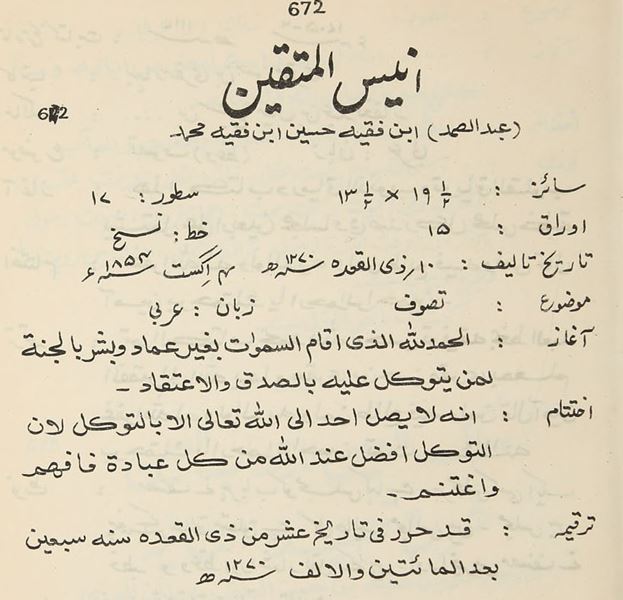 672
انیس المتقین
672
(عبدالصمد) ابن فقیہ حسین ابن فقیہ محمد
سائز : ۱۹ ۱/۲ × ۱۳ ۱/۲ سطور : ۱۷
اوراق : ۱۵ خط : نسخ
تاریخ تالیف : ۱۰؍ذی القعدہ ۱۲۷۰ھ ۴؍ اگست ۱۸۵۴ء
موضوع : تصوف زبان : عربی
آغاز : الحمدللہ الذی اقام السموت بغیر عماد وبشر بالجنة
لمن یتوکل علیه بالصدق والاعتقاد ۔
اختتام : انه لا یصل احد الی اللہ تعالی الا بالتوکل لان
التوکل افضل عند اللہ من کل عبادة فافهم
واغتنم ۔
ترقیمہ : قد حرر فی تاریخ عشر من ذی القعدہ سنه سبعین
بعد المائتین والالف ۱۲۷۰ھ